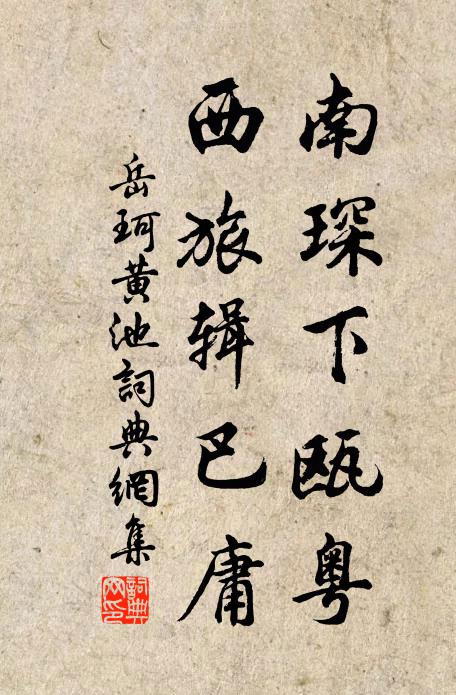 南琛下瓯粤
西旅辑巴庸
岳珂黄池詞典網集
詞典网印